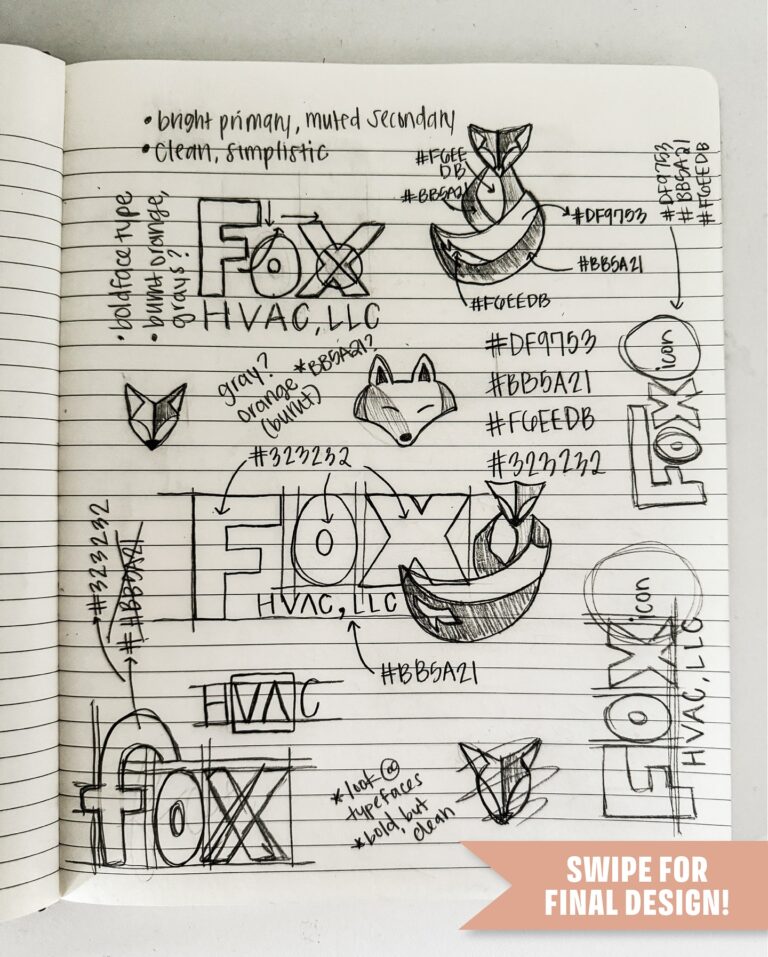 • bright primary, muted secondary
• clean, simplistic
#F6EE
DB
#BB5A21
#DF9753
#BB5A21
#F6EEDB
#DF9753
#BB5A21
#F6EEDB
• boldface type
• burnt orange,
grays?
Fox
HVAC, LLC
gray?
orange
(burnt)
*BB5A21?
#DF9753
#BB5A21
#F6EEDB
#323232
icon
Fox
#323232
FOX
HVAC, LLC
#BB5A21
#323232
##BB5A21
HVAC
fox
icon
FOX
HVAC, LLC
* look @
typefaces
* bold, but
clean
SWIPE FOR
FINAL DESIGN!